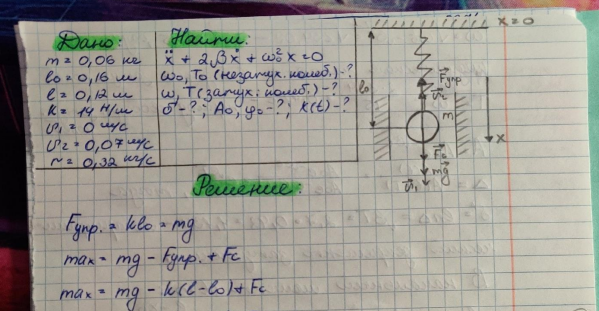 Дано:
m = 0,06 кг
l₀ = 0,16 м
l = 0,12 м
k = 14 Н/м
υ₁ = 0 м/с
υ₂ = 0,07 м/с
r = 0,32 кг/с
Найти:
ẍ + 2βẋ + ω₀²x = 0
ω₀, T₀ (незатух. колеб.) - ?
ω, T (затух. колеб.) - ?
σ - ?; A₀, φ₀ - ?; x(t) - ?
x = 0
l₀
F упр
x
Решение:
Fупр. = kl₀ = mg
maₓ = mg - Fупр. + Fc
maₓ = mg - k(l - l₀) + Fc